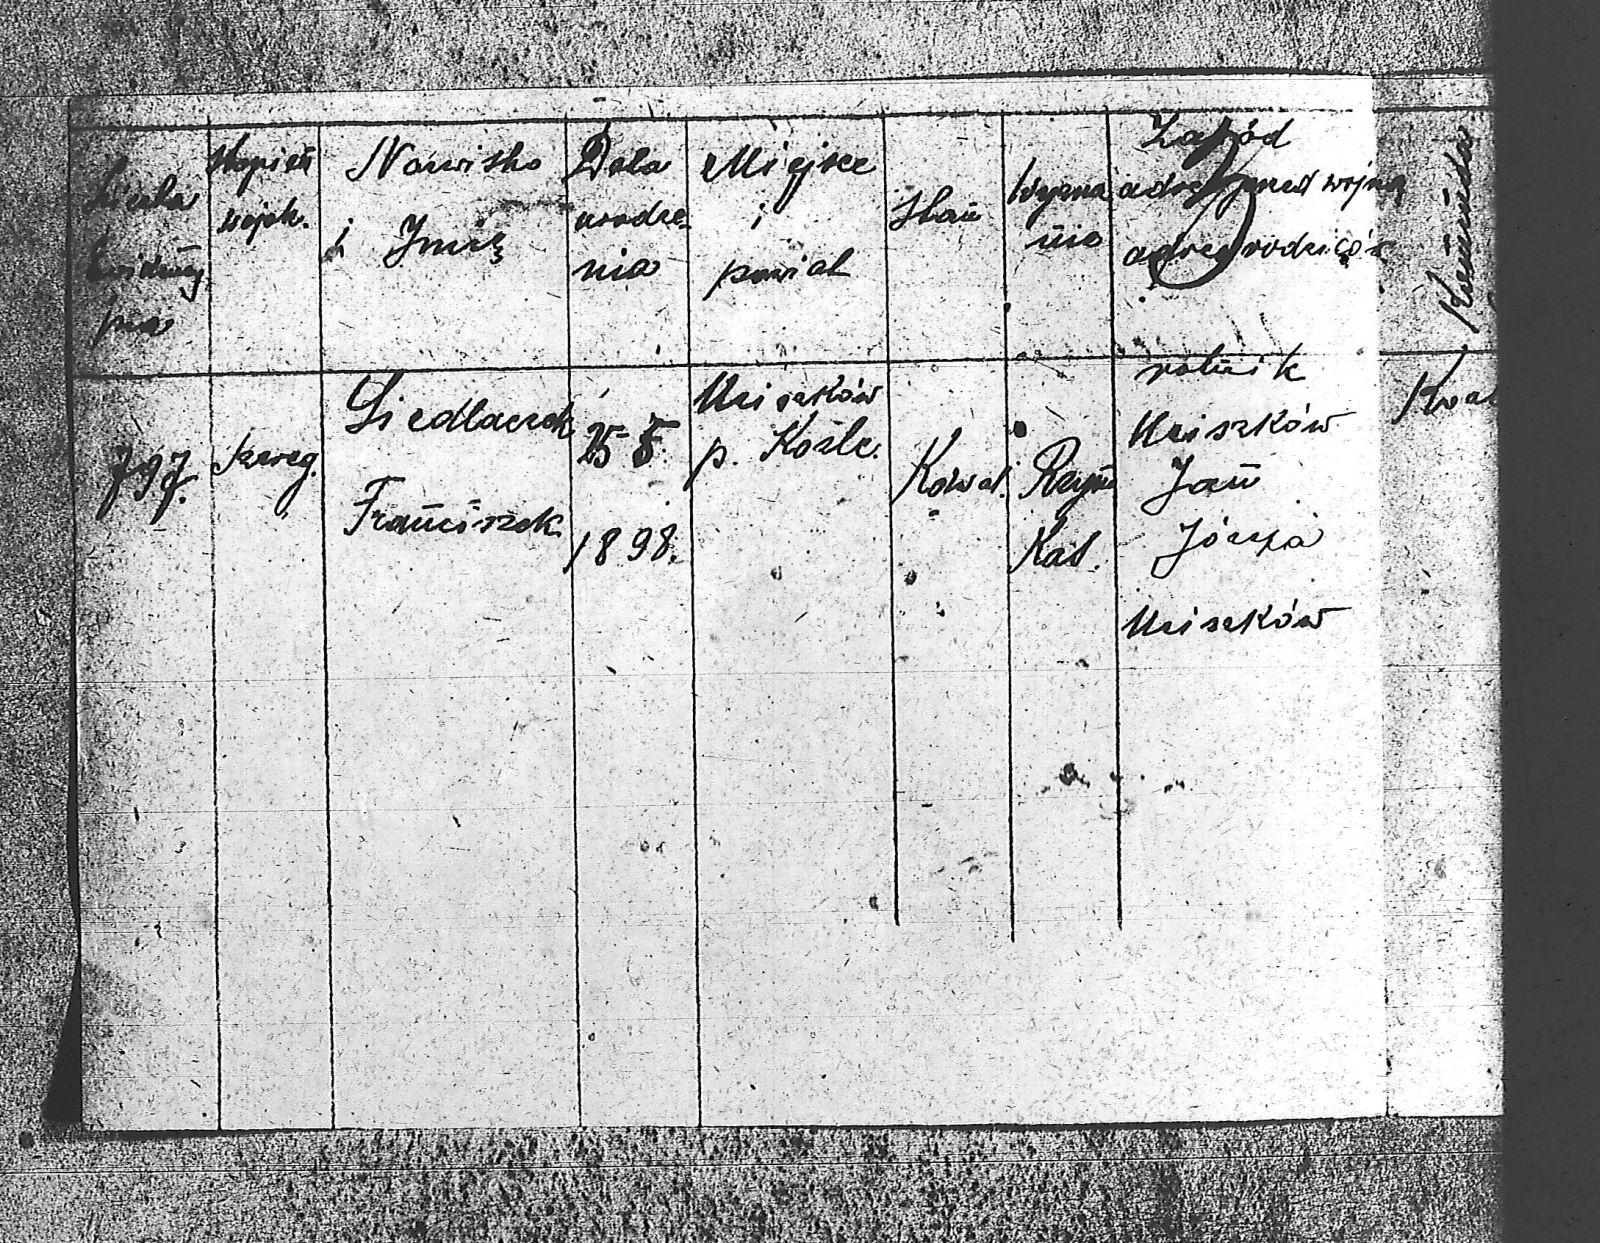 Liczba
Ewidency
jna
stopień
wojsk.
Nazwisko
i Imię
Data
urodze-
nia
Miejsce
i
powiat
Stan
Wyzna
nie
Zawód
adres przed wojną
adres rodziców
797.
Szereg.
Siedlaczek
Franciszek
25 5.
1898.
Uciszków
p. Koźle.
Kawal.
Rzym
Kat.
rolnik
Uciszków
Jan
Józefa
Uciszków